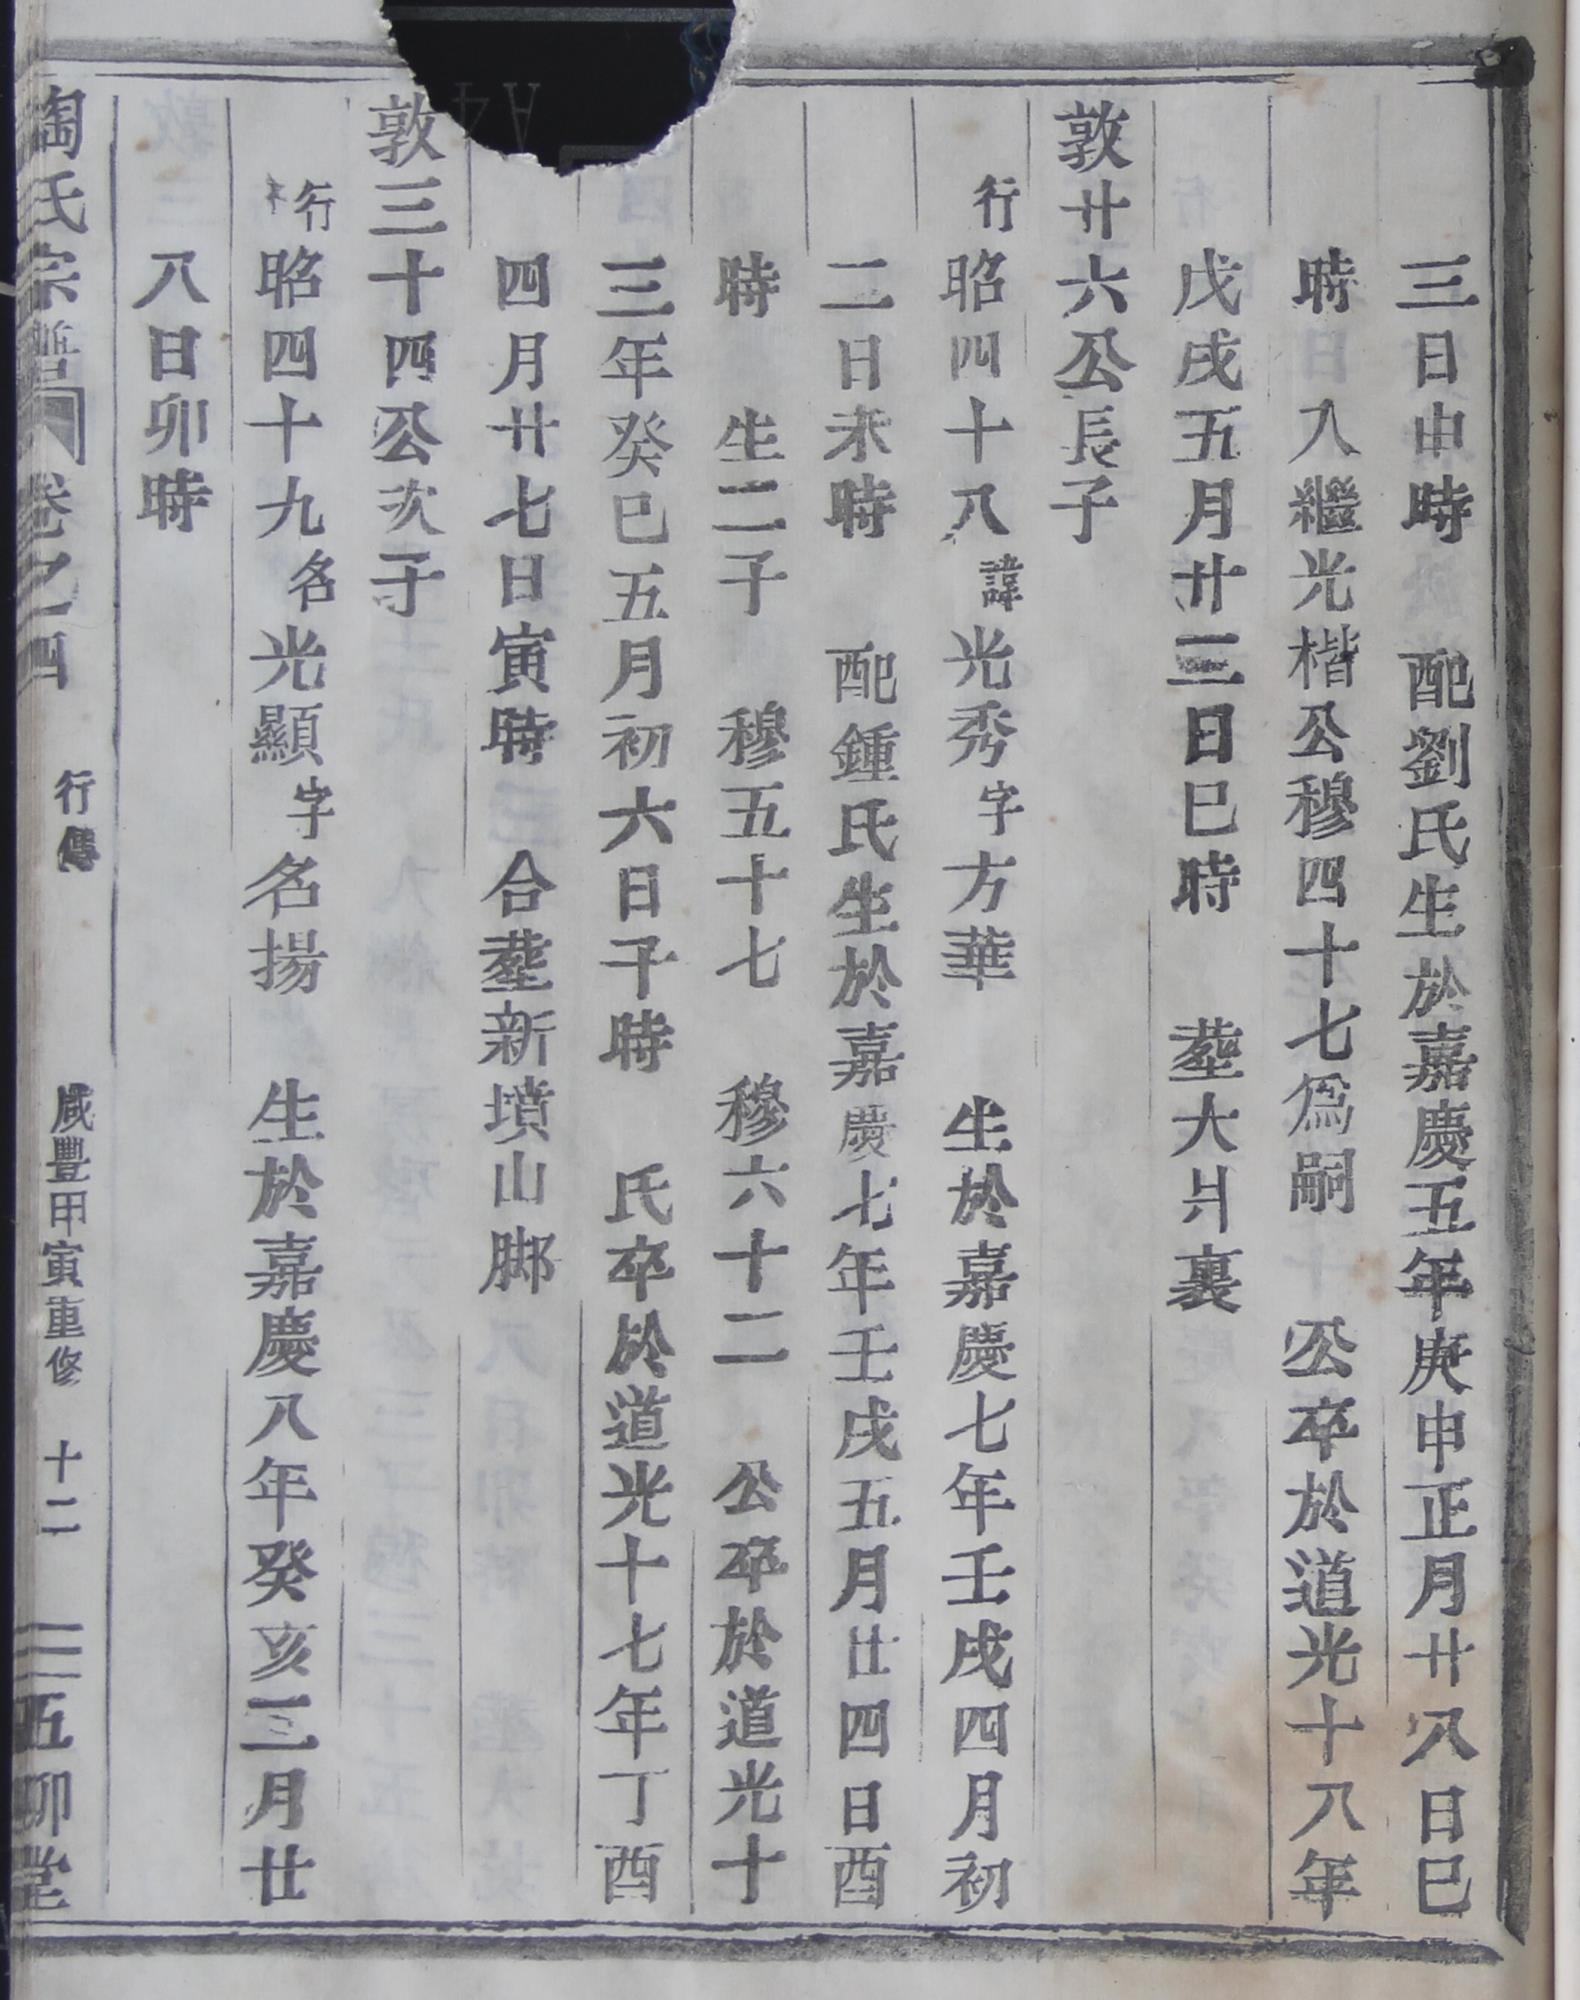 三日申時　配劉氏生於嘉慶五年庚申正月廿八日巳
時　入繼光楷公穆四十七爲嗣　公卒於道光十八年
戊戌五月廿三日巳時　塟大爿裏
敦廿六公長子
行昭四十八諱光秀字方華　生於嘉慶七年壬戌四月初
二日未時　配鍾氏生於嘉慶七年壬戌五月廿四日酉
時　生二子　穆五十七　穆六十二　公卒於道光十
三年癸巳五月初六日子時　氏卒於道光十七年丁酉
四月廿七日寅時　合塟新墳山脚
敦三十四公次子
行昭四十九名光顯字名揚　生於嘉慶八年癸亥三月廿
八日卯時
陶氏宗譜　卷之四　行傳　咸豐甲寅重修　十二　五柳堂